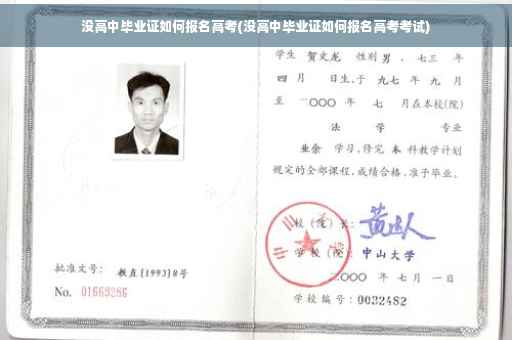 没高中毕业证如何报名高考(没高中毕业证如何报名高考考试)
学生 贺文龙 性别 男 , 七三 年
四 月 日生,于 九七 年 九 月
至 二〇〇〇 年 七 月在本校(院)
法 学 专业
业余 学习,修完 本 科教学计划
规定的全部课程,成绩合格,准予毕业。
校(院)长:
学校(院): 中山大学
二〇〇〇 年 七 月 一 日
批准文号: 教直[1993]8号
No. 01669286
学校编号: 0032482